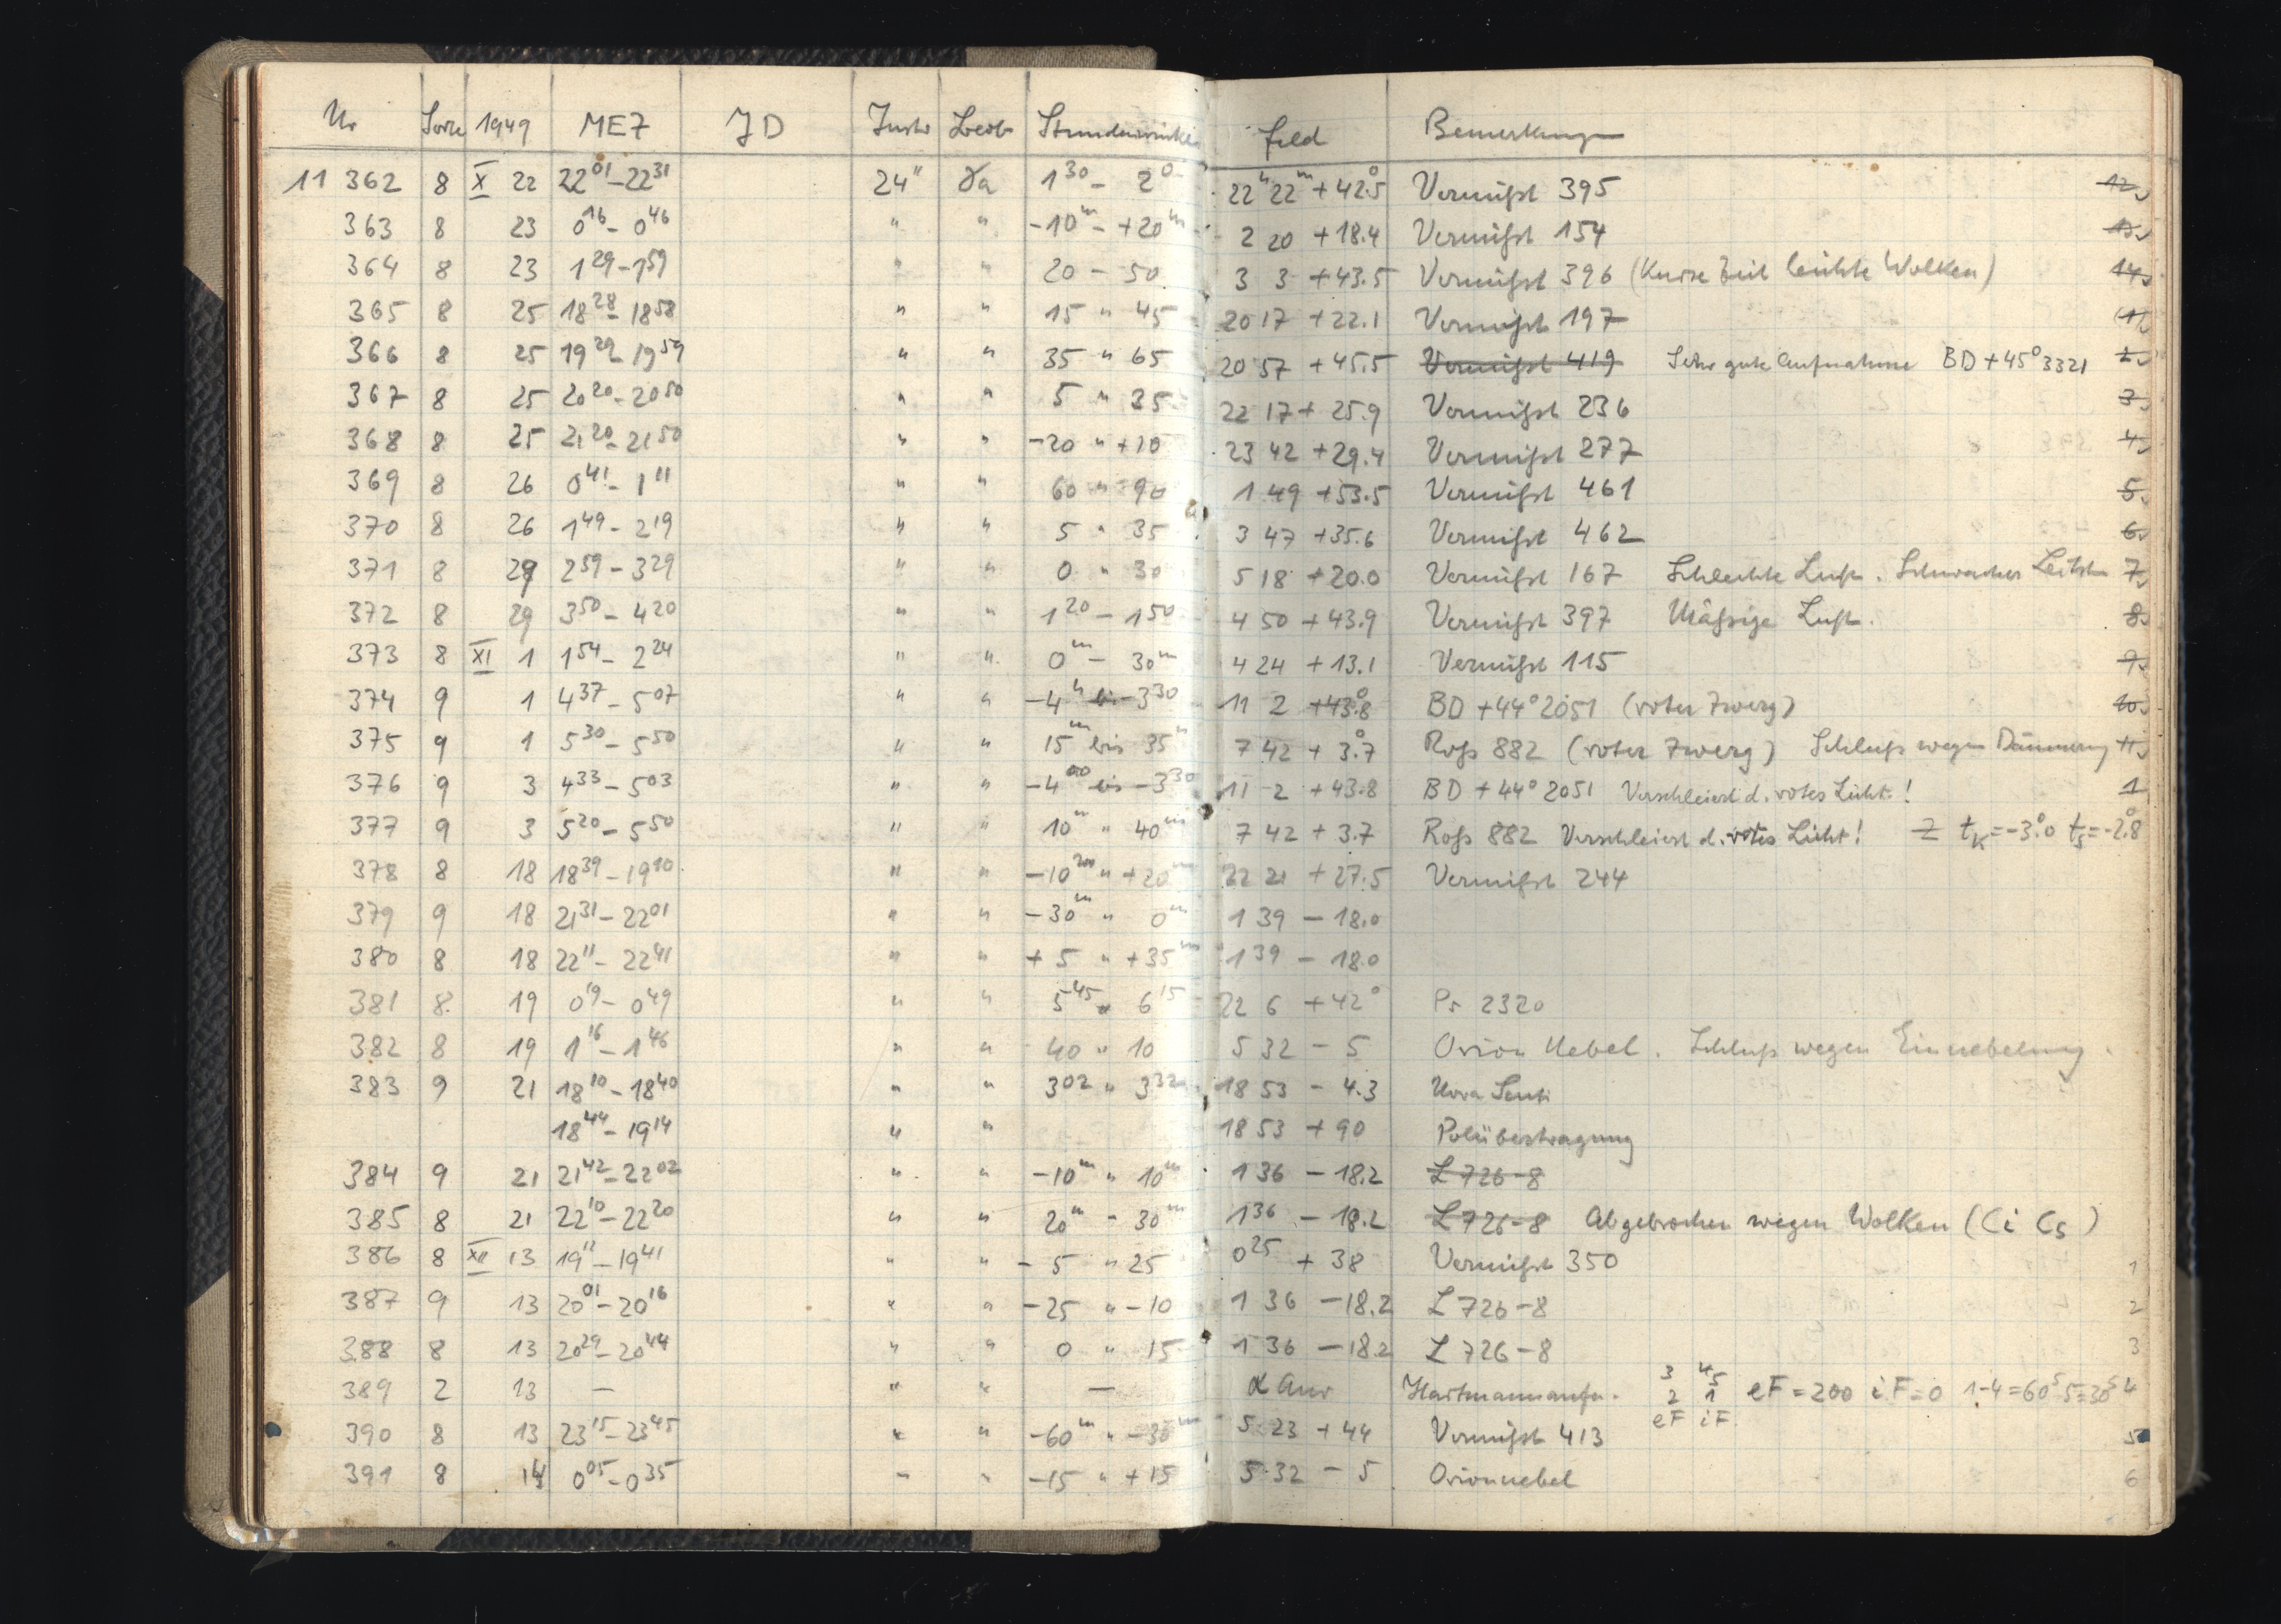 Nr Sorte 1949 MEZ JD Instr Beob Stundenwinkel Feld Bemerkungen
11 362 8 X 22 22 01 - 22 31 24" Ga 1 30 - 2 0 22h 22m + 42.5° Vermißt 395 12
363 8 23 0 16 - 0 46 " " -10m - +20m 2 20 +18.4 Vermißt 154 13
364 8 23 1 29 - 1 59 " " 20 - 50 3 3 +43.5 Vermißt 396 (Kurze Zeit leichte Wolken) 14
365 8 25 18 28 - 18 58 " " 15 " 45 20 17 +22.1 Vermißt 197 (1)
366 8 25 19 29 - 19 59 " " 35 " 65 20 57 +45.5 Vermißt 419 Sehr gute Aufnahme BD +45° 3321 2
367 8 25 20 20 - 20 50 " " 5 " 35 22 17 + 25.9 Vermißt 236 3
368 8 25 21 20 - 21 50 " " -20 " +10 23 42 +29.4 Vermißt 277 4
369 8 26 0 41 - 1 11 " " 60 " 90 1 49 +53.5 Vermißt 461 5
370 8 26 1 49 - 2 19 " " 5 " 35 3 47 +35.6 Vermißt 462 6
371 8 29 2 59 - 3 29 " " 0 " 30 5 18 +20.0 Vermißt 167 Schlechte Luft. Schwacher Leitst. 7
372 8 29 3 50 - 4 20 " " 1 20 - 1 50 4 50 +43.9 Vermißt 397 Mäßige Luft. 8
373 8 XI 1 1 54 - 2 24 " " 0m - 30m 4 24 + 13.1 Vermißt 115 9
374 9 1 4 37 - 5 07 " " -4h bis -3 30 11 2 +43.8° BD +44° 2051 (roter Zwerg) 10
375 9 1 5 30 - 5 50 " " 15m bis 35m 7 42 + 3.7° Roß 882 (roter Zwerg) Schluß wegen Dämmerung 11
376 9 3 4 33 - 5 03 " " -4 00 bis -3 30 11 2 +43.8 BD +44° 2051 Verschleiert d. rotes Licht! 1
377 9 3 5 20 - 5 50 " " 10m " 40m 7 42 + 3.7 Roß 882 Verschleiert d. rotes Licht! 2 tK = -3.°0 tS = -2.°8
378 8 18 18 39 - 19 10 " " -10m " +20m 22 21 +27.5 Vermißt 244
379 9 18 21 31 - 22 01 " " -30m " 0m 1 39 - 18.0
380 8 18 22 11 - 22 41 " " + 5 " +35m 1 39 - 18.0
381 8 19 0 19 - 0 49 " " 5 45 " 6 15 22 6 +42° Ps 2320
382 8 19 1 16 - 1 46 " " 40 " 10 5 32 - 5 Orion Nebel. Schluß wegen Einnebelung.
383 9 21 18 10 - 18 40 " " 3 02 " 3 32 18 53 - 4.3 Nova Scuti
18 44 - 19 14 " " 18 53 + 90 Polübertragung
384 9 21 21 42 - 22 02 " " -10m " 10m 1 36 - 18.2 L 726-8
385 8 21 22 10 - 22 20 " " 20m - 30m 1 36 - 18.2 L 726-8 Abgebrochen wegen Wolken (Ci Cs)
386 8 XII 13 19 11 - 19 41 " " - 5 " 25 0 25 + 38 Vermißt 350 1
387 9 13 20 01 - 20 16 " " -25 " -10 1 36 -18.2 L 726-8 2
388 8 13 20 29 - 20 44 " " 0 " 15 1 36 -18.2 L 726-8 3
389 2 13 — " " — α Aur Hartmannaufn. 3 4 5 2 1 eF iF eF = 200 iF = 0 1-4 = 60s 5 = 30s 4
390 8 13 23 15 - 23 45 " " -60m " -30m 5 23 +44 Vermißt 413 5
391 8 14 0 05 - 0 35 " " -15 " +15 5 32 - 5 Orionnebel 6